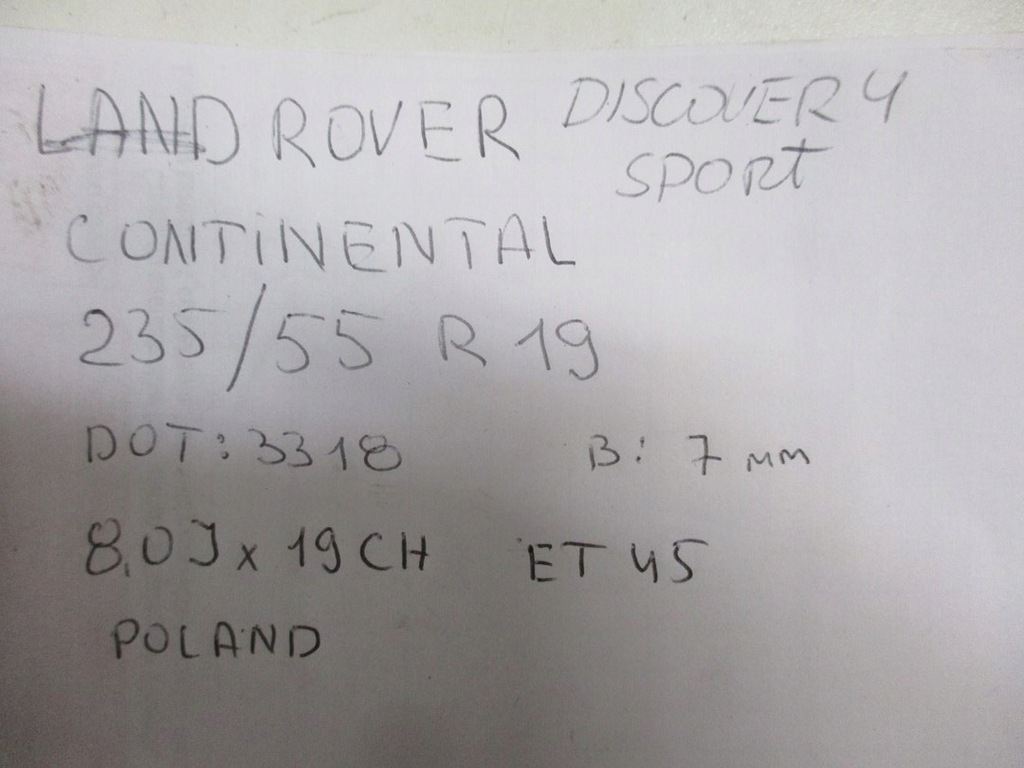 LAND ROVER DISCOVERY
SPORT
CONTINENTAL
235/55 R 19
DOT: 3318 B: 7 mm
8,0J x 19 CH ET 45
POLAND